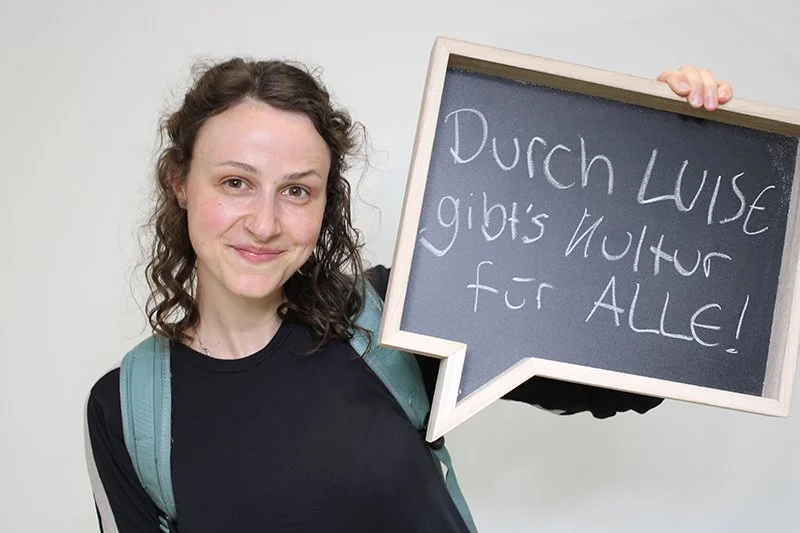 Durch LUISE
gibt's Kultur
für ALLE!